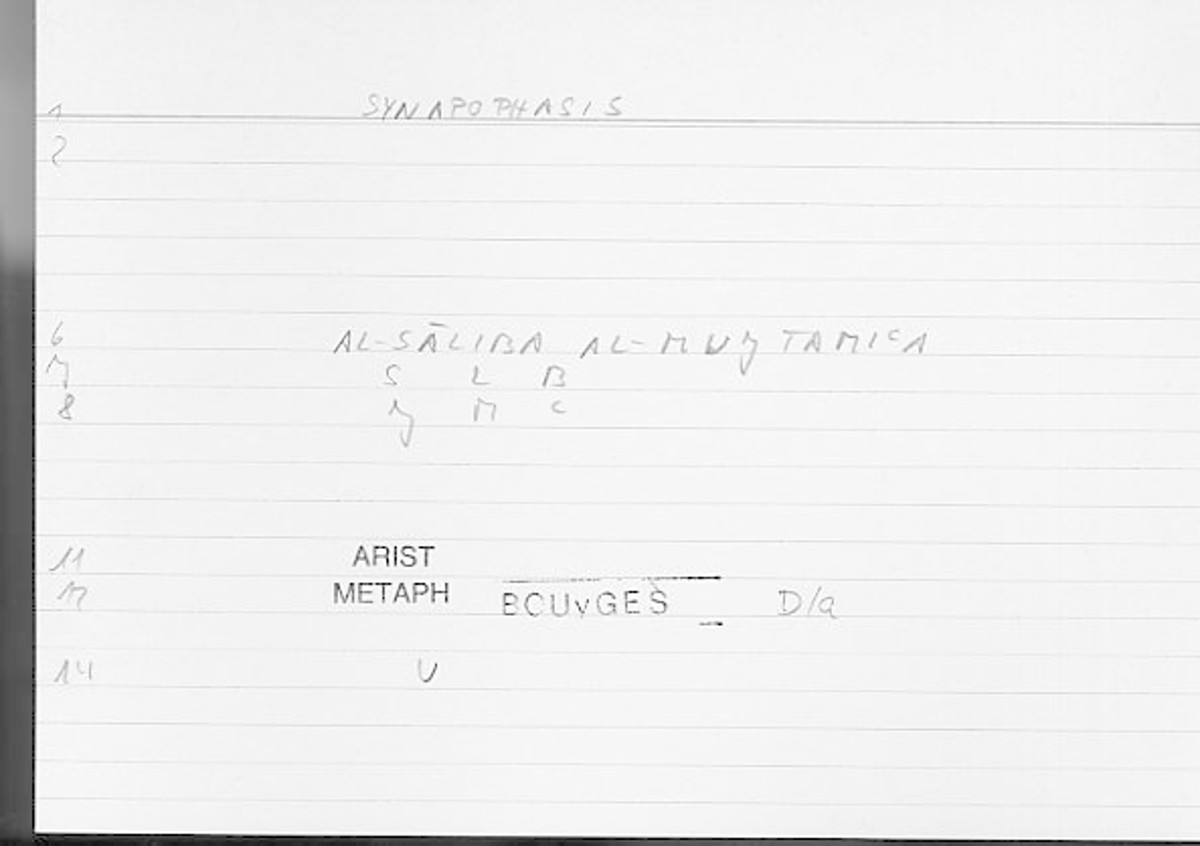 1 SYNAPOPHASIS
2
6 AL-SĀLIBA AL-MUǦTAMIᶜA
7 S L B
8 ǧ M ᶜ
11 ARIST
12 METAPH BOUYGES D/a
14 U